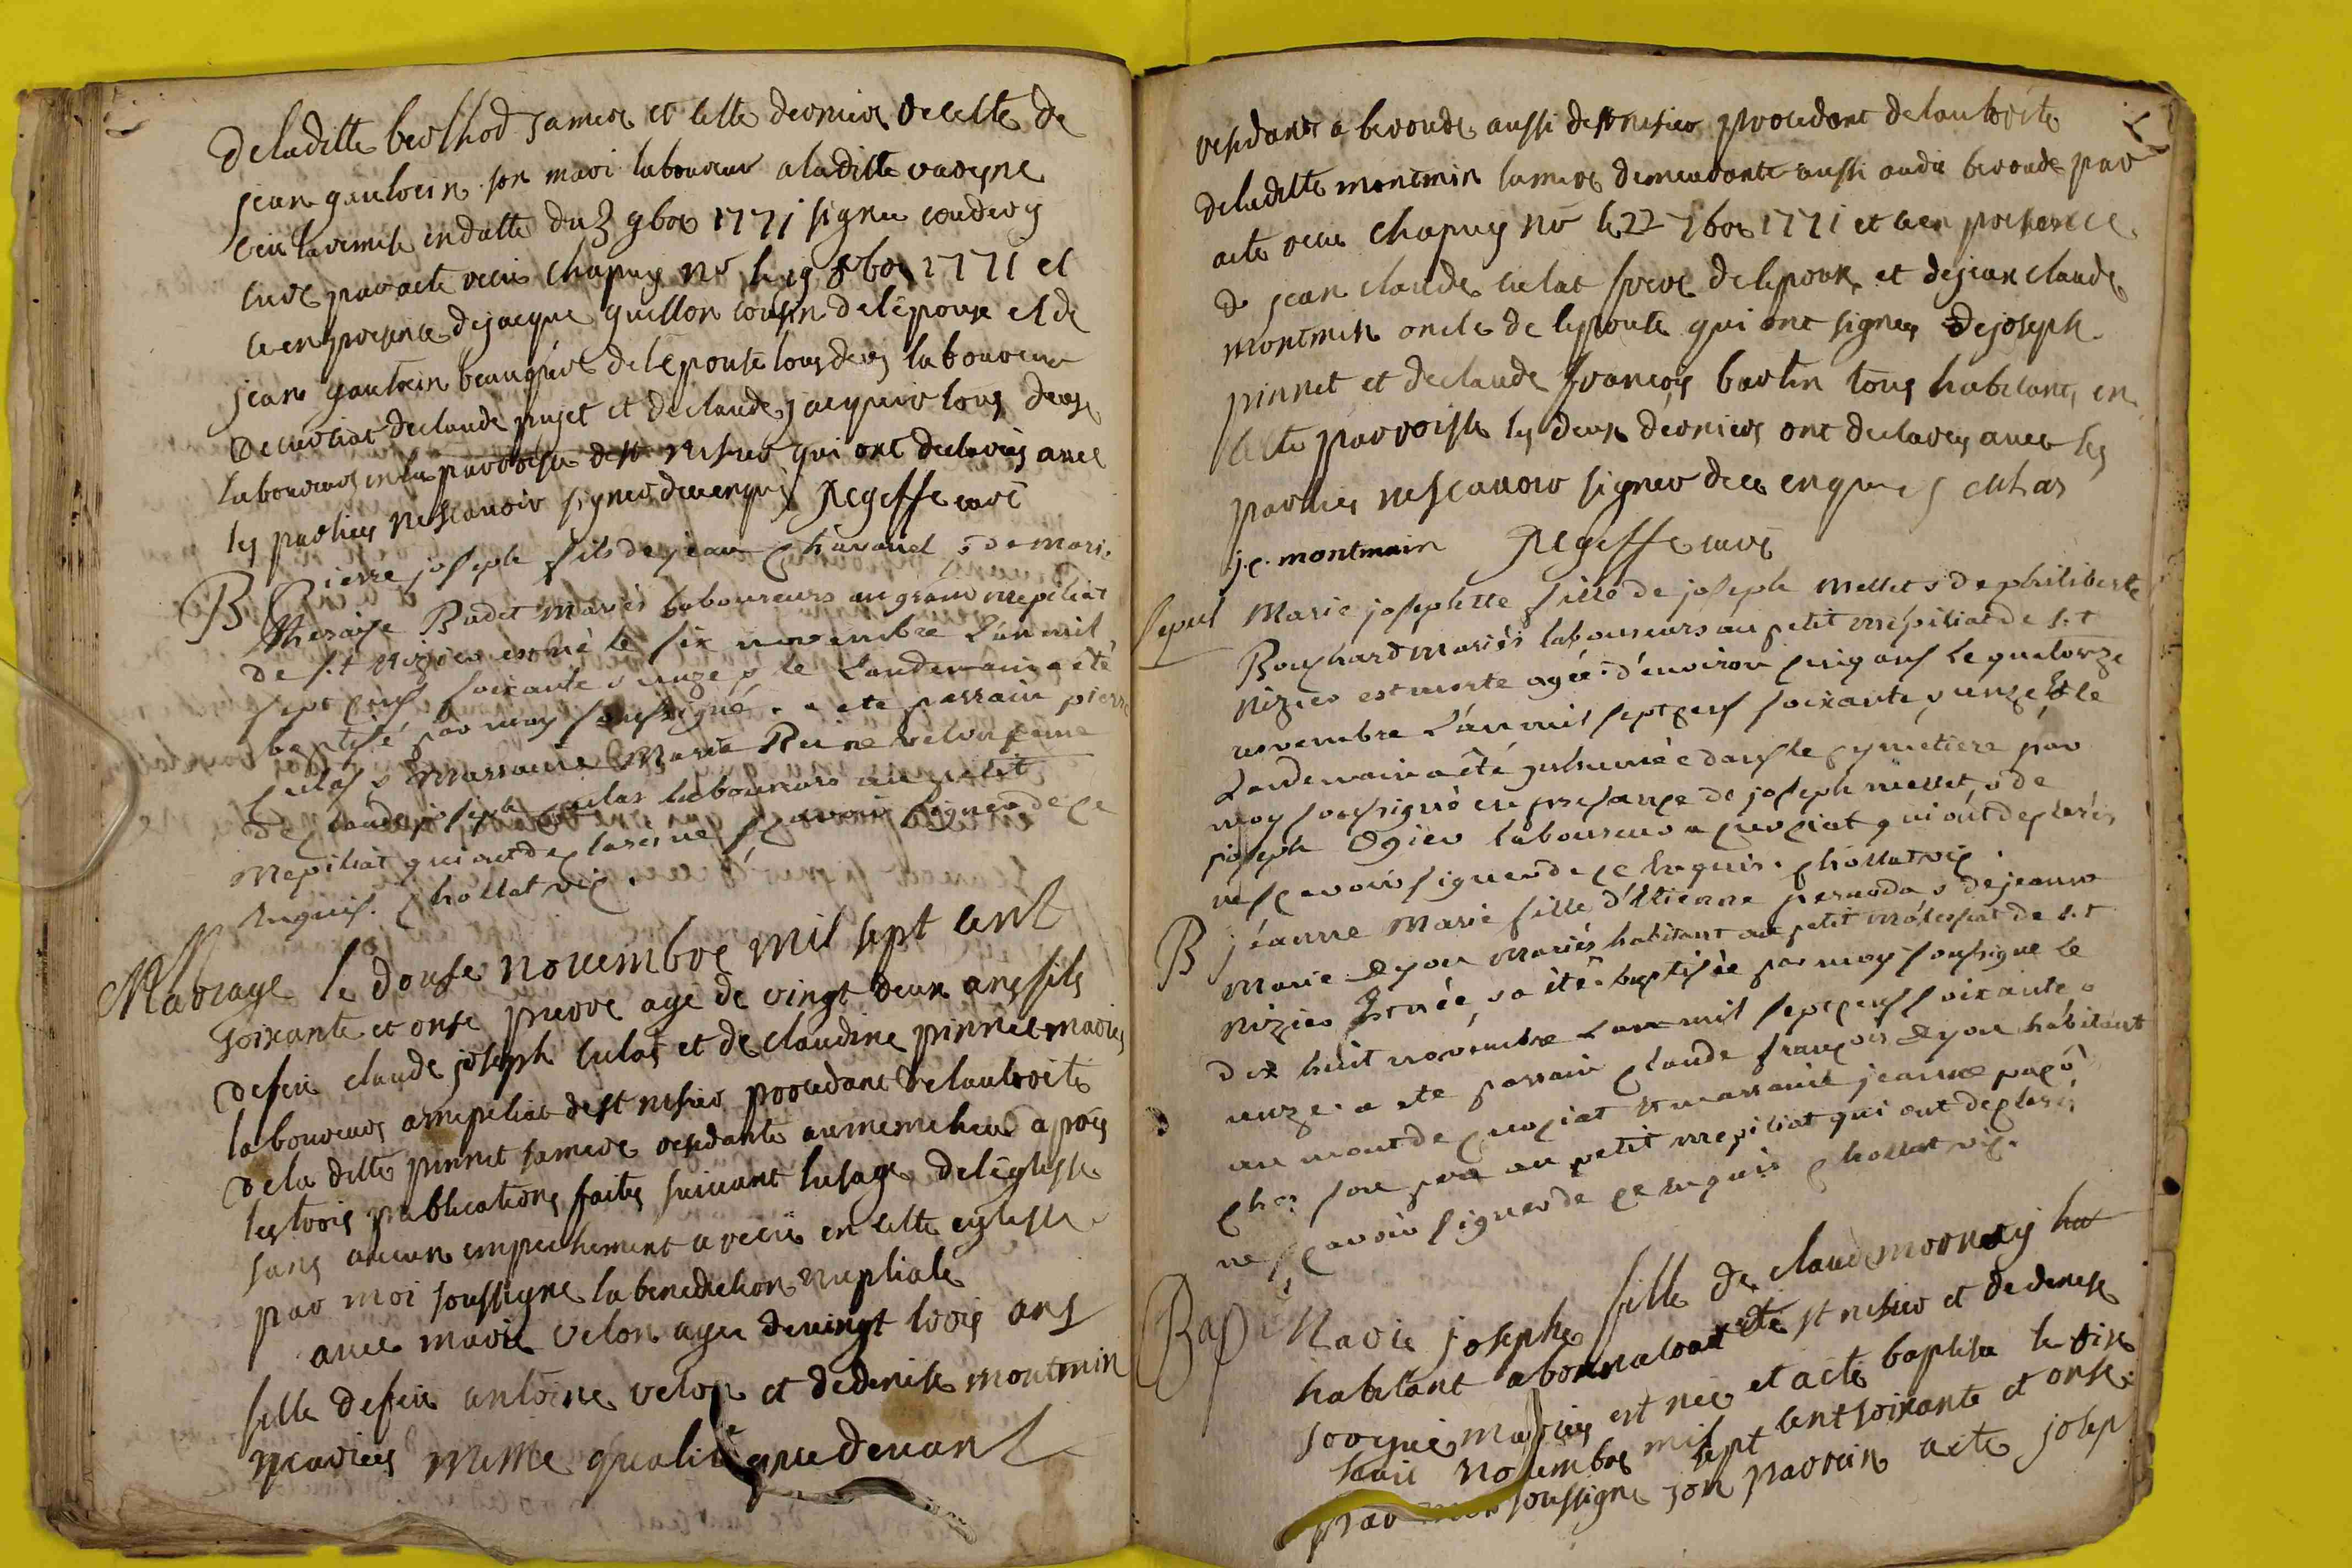 deladitte berthod sa mere et cette derniere de celle de
jean gauterin son mari laboureur a laditte varegne
veu la remise en datte du 3 9bre 1771 signee
curé par acte recu chapuy nre le 19 8bre 1771 et
ce en presence de jacque guillon cousin de l'époux et de
jean gauterin beau père de l'épouse tous deux laboureur
de curciat de claude pujet et de claude jacquier tous deux
laboureurs en la parroisse de st nisier qui ont declarés avec
les parties ne scavoir signer de ce enquis Regeffe curé
B Pierre joseph fils de jean Chavanel & de marie
Theraise Badet mariés laboureurs au grand mepiliat
de s.t nizier est né le six novembre L'an mil
sept cens soixante & unze & le Landemain a été
baptisé par moy soussigné. a ete parrain pierre
Culas & marraine Marie Reine velon femme
de Claude joseph Culas laboureurs au petit
Mepiliat qui ont declarés ne sçavoir signer de ce
Enquis. Chollat vic.
Mariage le douse novembre mil sept cent
soixante et onse pierre agé de vingt deux ans fils
defeu claude joseph culas et de claudine pinnet mariés
laboureurs a mepiliat de st nisier procedant de lautorité
de la ditte pinnet sa mere residante au meme lieu apres
les trois publications faites suivant lusage de léglisse
sans aucun empechement a recu en cette eglisse
par moi soussigné la benediction nuptiale
avec marie velon agee de vingt trois ans
fille defeu antoine velon et de denise montmin
mariées meme qualité que devant
residante a beronde aussi de st nisier procedant de lautorité
de laditte montmin sa mere demeurante aussi audit beronde par
acte recu chapuy nre le 22 7bre 1771 et ce en presence
de jean claude culat frere de lepoux et de jean claude
montmin oncle de lepouse qui ont signes de joseph
pinnet et de claude françois bartin tous habitant en
cette parroisse les deux derniers ont declares avec les
parties ne scavoir signer de ce enquis culas
j.c. montmain Regeffe curé
Sepul Marie josephette fille de joseph Mellet & de philiberte
Bouchard mariés laboureurs au petit mépiliat de s.t
Nizier est morte agée d'environ cinq ans le quatorze
novembre L'an mil sept cens soixante & unze & le
Landemain a été inhumée dans le cymetiere par
moy soussigné en presance de joseph mellet, & de
joseph Ogier laboureurs a Curciat qui ont declarés
ne sçavoir signer de ce Enquis. Chollat vic.
B jeanne Marie fille d'Etienne pernoda & de jeanne
Marie Eyon mariés habitant au petit mépiliat de s.t
Nizier Est née, & a été baptisée par moy soussigné le
dix huit novembre L'an mil sept cens soixante &
unze. a ete parrain Claude françois Eyon habitant
au mont de Curciat & marraine jeanne
chez son pere au petit mepiliat qui ont declarés
ne sçavoir signer de ce Enquis Chollat vic.
Bap Marie josephe fille de claude mornay ha
habitant a bonnatout st nisier et de denise
mariées est nee et a été baptisee le dix
novembre mil sept cent soixante et onse
par moi soussigné son parrein a été josep